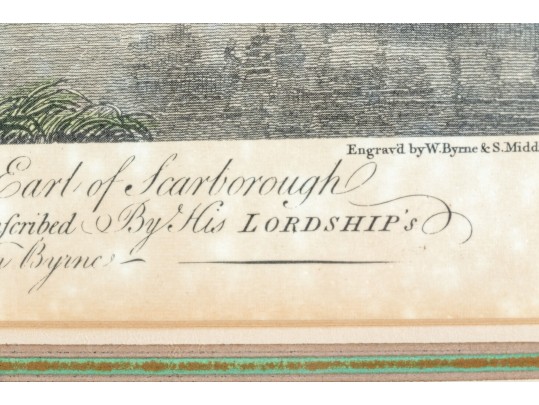 Engrav'd by W. Byrne & S. Midd
Earl of Scarborough
scribed By His LORDSHIP's
Byrne